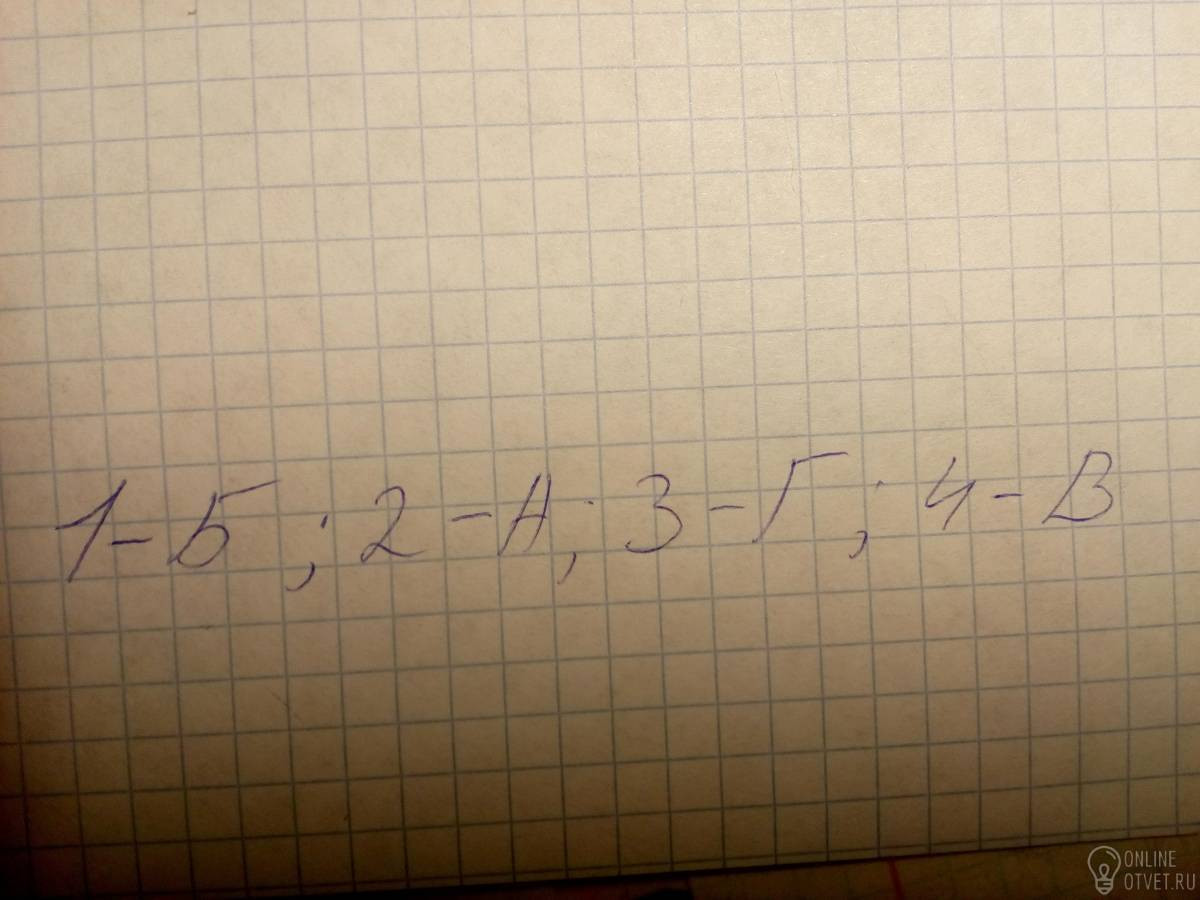 1-Б; 2-А; 3-Г; 4-В
ONLINE
OTVET.RU